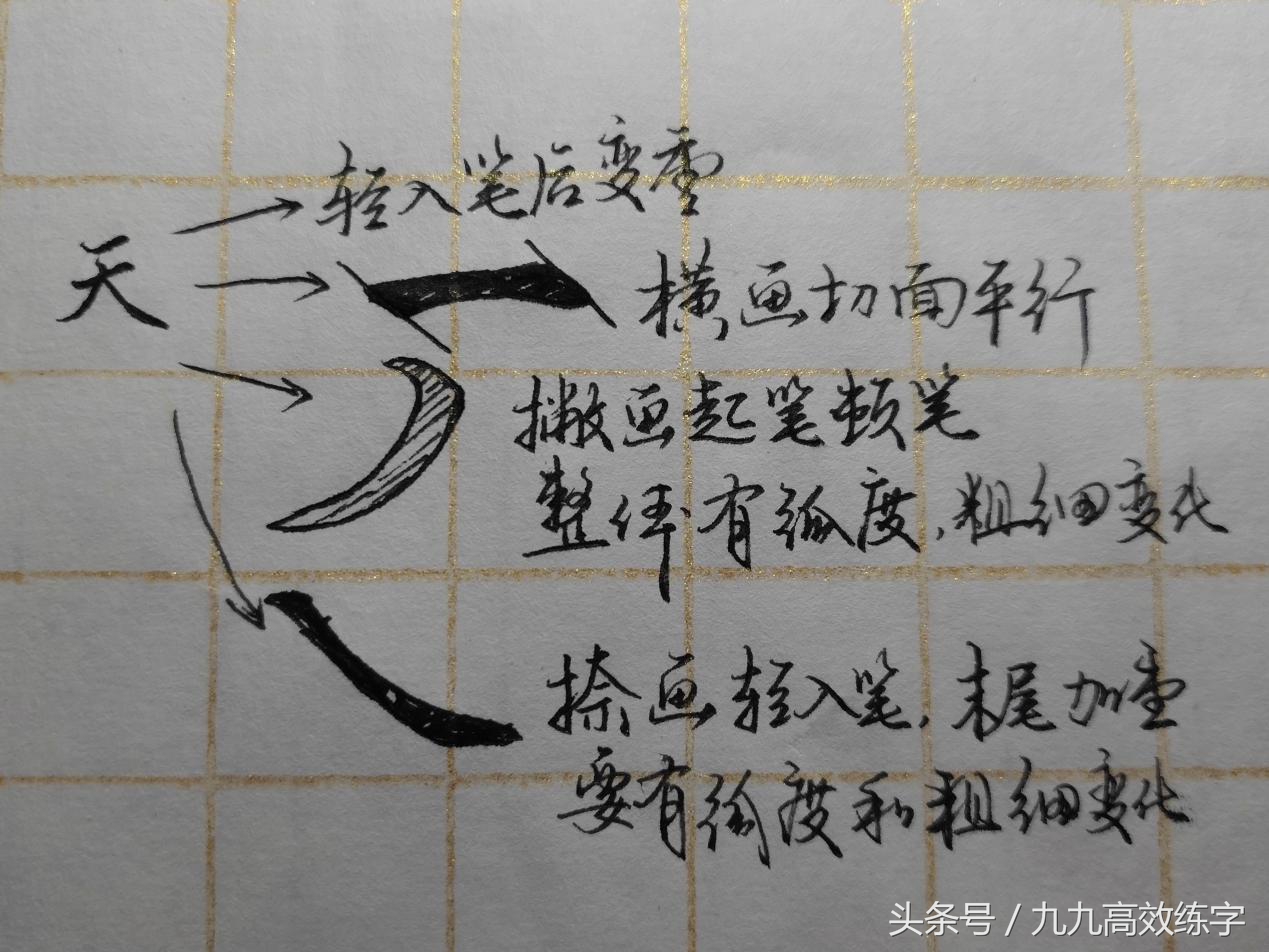 轻入笔后变重
天
横画切面平行
撇画起笔顿笔
整体有弧度,粗细变化
捺画轻入笔,末尾加重
要有弧度和粗细变化
头条号 / 九九高效练字